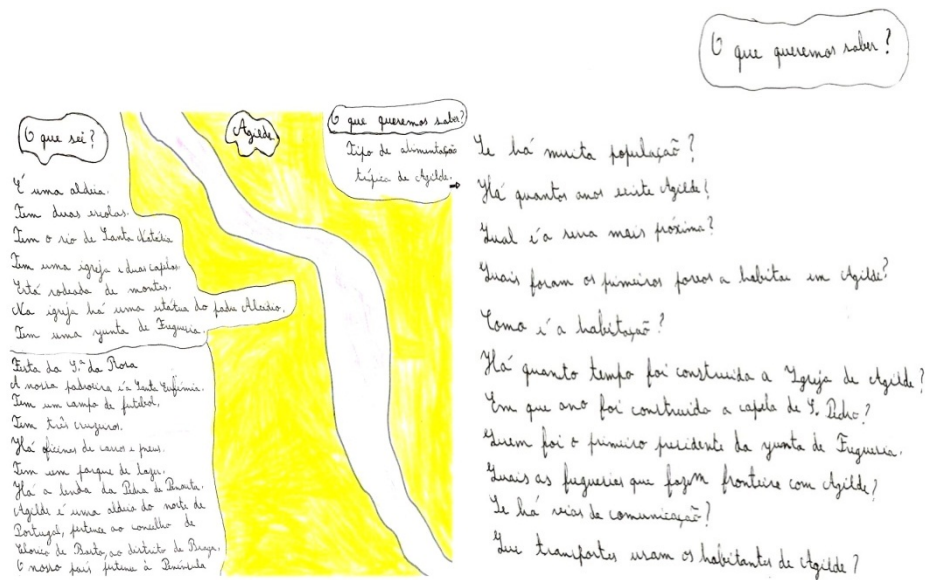 O que queremos saber?
O que sei?
Agilde
O que queremos saber?
Tipo de alimentação
típica de Agilde.
É uma aldeia.
Tem duas escolas.
Tem o rio de Santa Natália
Tem uma igreja e duas capelas
Está rodeada de montes.
Na igreja há uma estátua do padre Aladio.
Tem uma yunta de Freguesia.
Festa da S.ª da Rosa
A nossa padroeira é a Santa Eufémia.
Tem um campo de futebol.
Tem três cruzeiros.
Há oficinas de carros e pneus.
Tem um parque de lazer.
Há a lenda da Pedra de
Agilde é uma aldeia do norte de
Portugal, pertence ao concelho de
Celorico de Basto, ao distrito de Braga.
O nosso país pertence à Península
Se há muita população?
Há quantos anos existe Agilde?
Qual é a serra mais próxima?
Quais foram os primeiros povos a habitar em Agilde?
Como é a habitação?
Há quanto tempo foi construída a Igreja de Agilde?
Em que ano foi construída a capela de S. Pedro?
Quem foi o primeiro presidente da yunta de Freguesia.
Quais as freguesias que fazem fronteira com Agilde?
Se há vias de comunicação?
Que transportes usam os habitantes de Agilde?